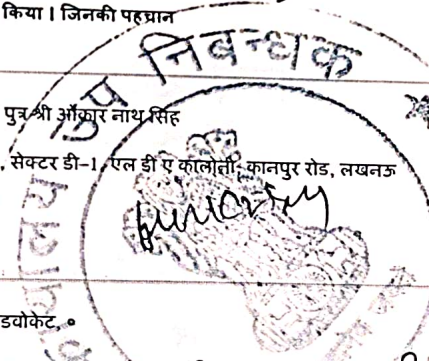 किया । जिनकी पहचान
उप निबन्धक
पुत्र श्री ओंकार नाथ सिंह
, सेक्टर डी-1, एल डी ए कालोनी, कानपुर रोड, लखनऊ
डवोकेट,